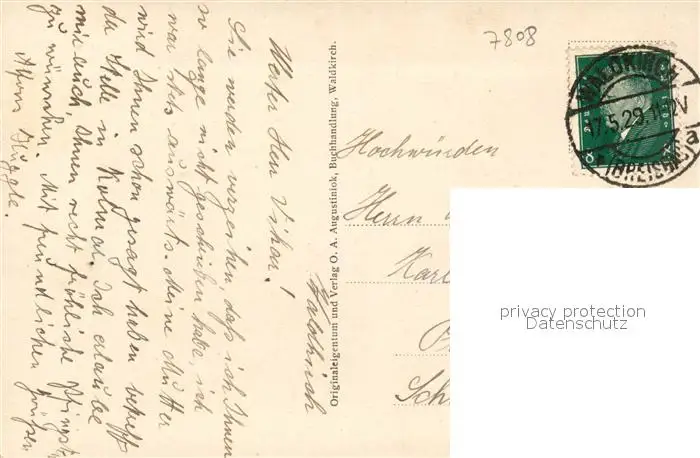 7808
WALDKIRCH
17.5.29.11-12V
a
(BREISGAU)
Originaleigentum und Verlag O. A. Augustiniok, Buchhandlung, Waldkirch.
Waldkirch
Werter Herr Vikar!
Sie werden verzeihen daß ich Ihnen
so lange nicht geschrieben habe, ich
war stets auswärts. Meine Mutter
wird Ihnen schon gesagt haben betreff
der Stelle in Kolmar. Ich erlaube
mir auch, Ihnen recht fröhliche Pfingsten
zu wünschen. Mit freundlichen Grüßen
Alfons
Hochwürden
Herrn
Karl
Sch
privacy protection
Datenschutz